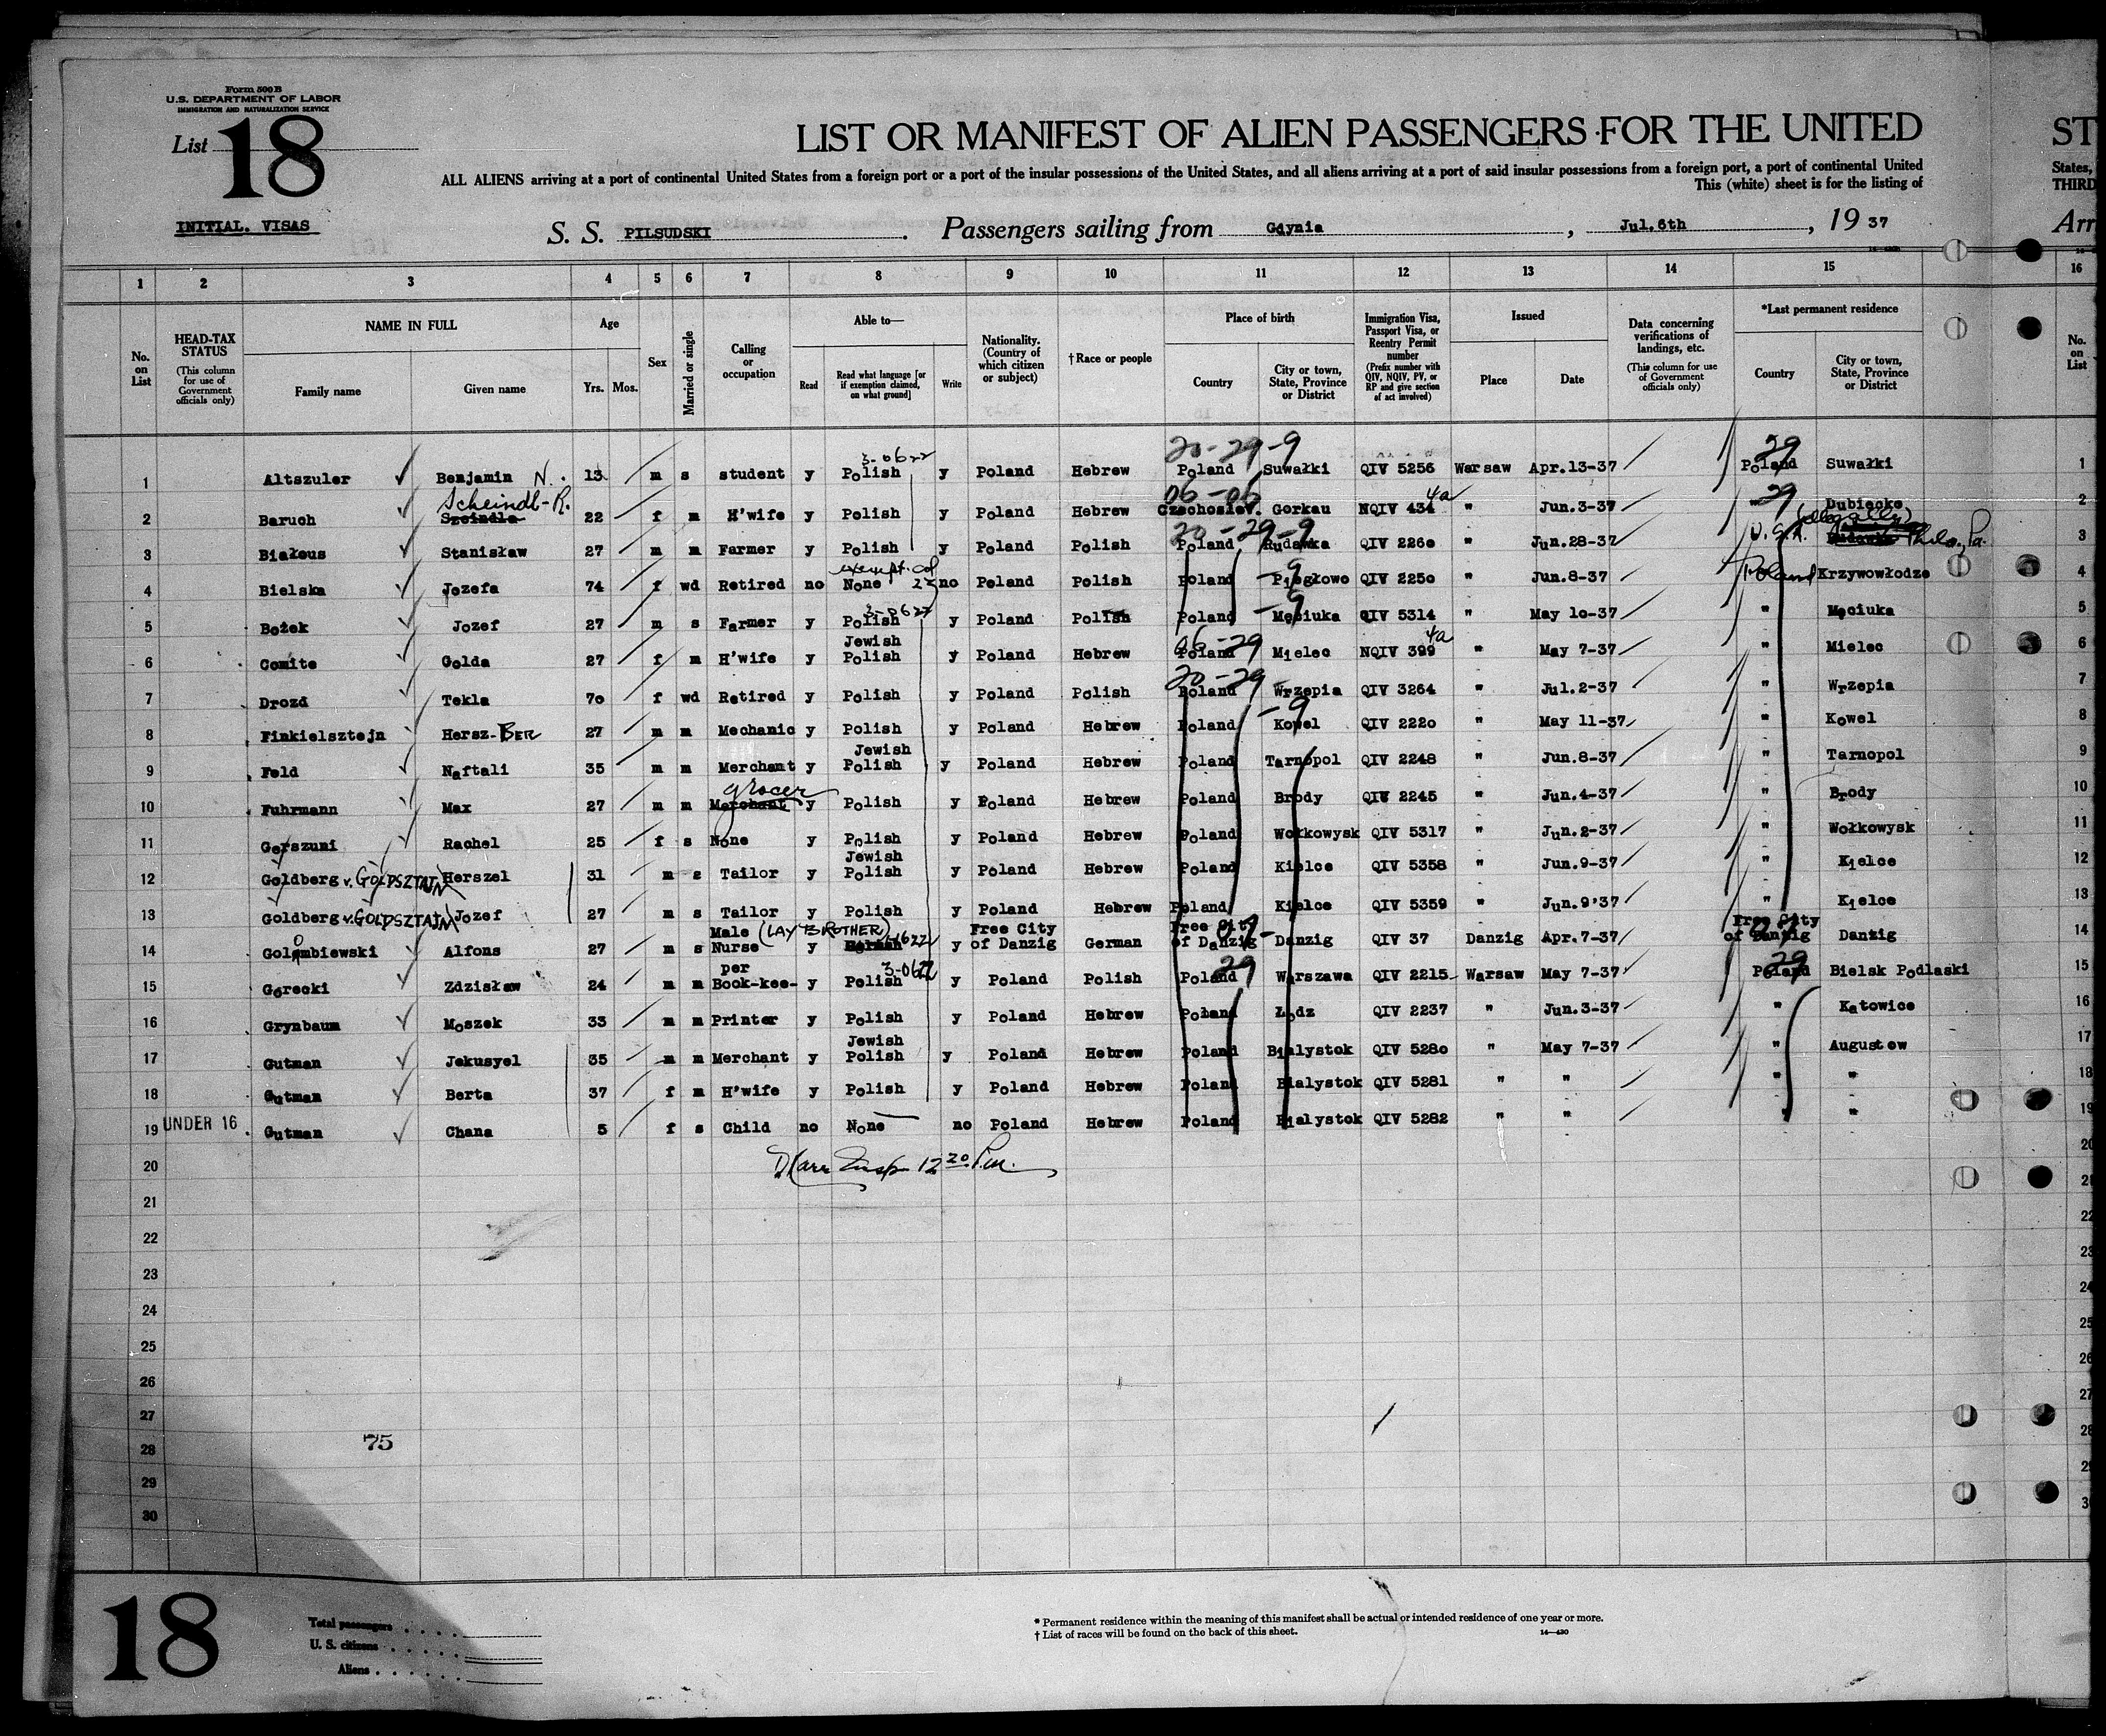 Form 500 B
U.S. DEPARTMENT OF LABOR
IMMIGRATION AND NATURALIZATION SERVICE
List 18
LIST OR MANIFEST OF ALIEN PASSENGERS FOR THE UNITED
ST
ALL ALIENS arriving at a port of continental United States from a foreign port or a port of the insular possessions of the United States, and all aliens arriving at a port of said insular possessions from a foreign port, a port of continental United
States,
This (white) sheet is for the listing of
THIRD
INITIAL. VISAS
S. S. PILSUDSKI. Passengers sailing from Gdynia, Jul.6th, 1937
Arr
1 2 3 4 5 6 7 8 9 10 11 12 13 14 15 16
No. on List
HEAD-TAX STATUS (This column for use of Government officials only)
NAME IN FULL
Family name
Given name
Age
Yrs. Mos.
Sex
Married or single
Calling or occupation
Able to—
Read
Read what language [or if exemption claimed, on what ground]
Write
Nationality. (Country of which citizen or subject)
†Race or people
Place of birth
Country
City or town, State, Province or District
Immigration Visa, Passport Visa, or Reentry Permit number (Prefix number with QIV, NQIV, PV, or RP and give section of act involved)
Issued
Place
Date
Data concerning verifications of landings, etc. (This column for use of Government officials only)
*Last permanent residence
Country
City or town, State, Province or District
No. on List
3-0622 20-29-9 29
1 Altszuler Benjamin N. 13 m s student y Polish y Poland Hebrew Poland Suwałki QIV 5256 Warsaw Apr.13-37 Poland Suwałki 1
Scheindl-R. 06-06 4a 29
2 Baruch Szeindla 22 f m H'wife y Polish y Poland Hebrew Czechoslov. Gorkau NQIV 434 " Jun.3-37 Dubiecko 2
20-29-9 (illegally)
3 Białous Stanisław 27 m m Farmer y Polish y Poland Polish Poland Rudawka QIV 2260 " Jun.28-37 U.S.A. Phila., Pa. 3
exempt. col 23
4 Bielska Jozefa 74 f wd Retired no None no Poland Polish Poland -9 QIV 2250 " Jun.8-37 Poland Krzywowłodze 4
3-0622
5 Bożek Jozef 27 m s Farmer y Polish y Poland Polish Poland -9 Męciuka QIV 5314 " May 10-37 " Męciuka 5
Jewish 06-29 4a
6 Comite Golda 27 f m H'wife y Polish y Poland Hebrew Poland Mielec NQIV 399 " May 7-37 " Mielec 6
20-29
7 Drozd Tekla 70 f wd Retired y Polish y Poland Polish Poland Wrzepia QIV 3264 " Jul.2-37 " Wrzepia 7
-9
8 Finkielsztejn Hersz-BER 27 m m Mechanic y Polish y Poland Hebrew Poland Kowel QIV 2220 " May 11-37 " Kowel 8
Jewish
9 Feld Naftali 35 m m Merchant y Polish y Poland Hebrew Poland Tarnopol QIV 2248 " Jun.8-37 " Tarnopol 9
grocer
10 Fuhrmann Max 27 m m Merchant y Polish y Poland Hebrew Poland Brody QIV 2245 " Jun.4-37 " Brody 10
11 Gerszuni Rachel 25 f s None y Polish y Poland Hebrew Poland Wołkowysk QIV 5317 " Jun.2-37 " Wołkowysk 11
Jewish
12 Goldberg v. GOLDSZTAJN Herszel 31 m s Tailor y Polish y Poland Hebrew Poland Kielce QIV 5358 " Jun.9-37 " Kielce 12
13 Goldberg v. GOLDSZTAJN Jozef 27 m s Tailor y Polish y Poland Hebrew Poland Kielce QIV 5359 " Jun.9'37 " Kielce 13
Male (LAY BROTHER) Free City Free City Free City
14 Golombiewski Alfons 27 m s Nurse y German y of Danzig German of Danzig Danzig QIV 37 Danzig Apr.7-37 of Danzig Danzig 14
per 3-0622 29 29
15 Gorecki Zdzisław 24 m m Book-kee- y Polish y Poland Polish Poland Warszawa QIV 2215 Warsaw May 7-37 Poland Bielsk Podlaski 15
16 Grynbaum Moszek 33 m m Printer y Polish y Poland Hebrew Poland Łodz QIV 2237 " Jun.3-37 " Katowice 16
Jewish
17 Gutman Jekusyel 35 m m Merchant y Polish y Poland Hebrew Poland Bialystok QIV 5280 " May 7-37 " Augustow 17
18 Gutman Berta 37 f m H'wife y Polish y Poland Hebrew Poland Bialystok QIV 5281 " " " " 18
19 UNDER 16 Gutman Chana 5 f s Child no None no Poland Hebrew Poland Bialystok QIV 5282 " " " " 19
20 Insp 12 20 P.m. 20
21
22 22
23 23
24 24
25 25
26 26
27 27
75
28 28
29
30
18
Total passengers
U. S. citizens
Aliens
* Permanent residence within the meaning of this manifest shall be actual or intended residence of one year or more.
† List of races will be found on the back of this sheet.
14—430